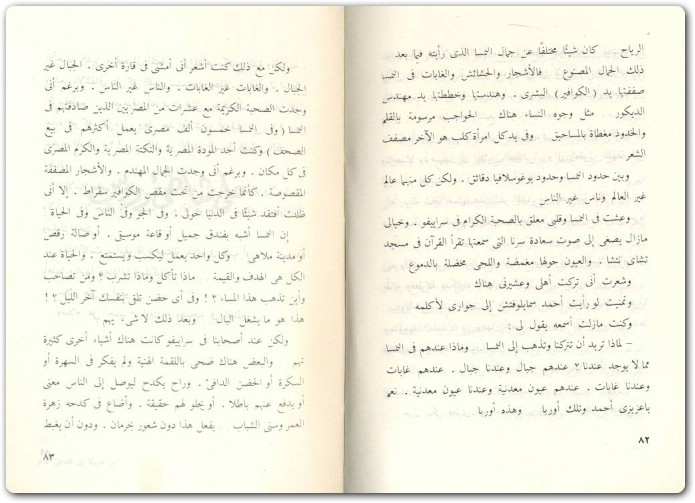 الرياح . كان شيئًا مختلفًا عن جمال النمسا الذى رأيته فيما بعد
ذلك الجمال المصنوع . فالأشجار والحشائش والغابات فى النمسا
صففتها يد (الكوافير) البشرى . وهندستها وخططتها يد مهندس
الديكور . مثل وجوه النساء هناك الحواجب مرسومة بالقلم
والخدود مغطاة بالمساحيق . وفى يد كل امرأة كلب هو الآخر مصفف
الشعر
وبين حدود النمسا وحدود يوغوسلافيا دقائق . ولكن كل منهما عالم
غير العالم وناس غير الناس
وعشت فى النمسا وقلبى معلق بالصحبة الكرام فى سراييفو . وخيالى
مازال يصغى إلى صوت سعادة سرنا التى سمعتها تقرأ القرآن فى مسجد
تشاى نتشا . والعيون حولها مغمضة واللحى مخضلة بالدموع
وشعرت أنى تركت أهلى وعشيرتى هناك
وتمنيت لو رأيت أحمد سمايلوفتش إلى جوارى لأكلمه
وكنت مازلت أسمعه يقول لى :
– لماذا تريد أن تتركنا وتذهب إلى النمسا وماذا عندهم فى النمسا
مما لا يوجد عندنا ؟ عندهم جبال وعندنا جبال . عندهم غابات
وعندنا غابات . عندهم عيون معدنية وعندنا عيون معدنية . نعم
ياعزيزى أحمد وتلك أوربا وهذه أوربا
٨٢
ولكن مع ذلك كنت أشعر أنى أمشى فى قارة أخرى . الجبال غير
الجبال . والغابات غير الغابات . والناس غير الناس . وبرغم أنى
وجدت الصحبة الكريمة مع عشرات من المصريين الذين صادفتهم فى
النمسا (وفى النمسا خمسون ألف مصرى يعمل أكثرهم فى بيع
الصحف) وكنت أجد المودة المصرية والنكتة المصرية والكرم المصرى
فى كل مكان . وبرغم أنى وجدت الجمال المهندم . والأشجار المصففة
المقصوصة . كأنما خرجت من تحت مقص الكوافير سقراط . إلا أنى
ظللت أفتقد شيئًا فى الدنيا حولى . وفى الجو وفى الناس وفى الحياة
إن النمسا أشبه بفندق جميل أو قاعة موسيقى . أو صالة رقص
أو مدينة ملاهى وكل واحد يعمل ليكسب ويستمتع . والحياة عند
الكل هى الهدف والقيمة .. ماذا تأكل وماذا تشرب ؟ ومن تصاحب
وأين تذهب هذا المساء ؟ ! وفى أى حضن تلقى بنفسك آخر الليل ؟ !
هذا هو ما يشغل البال وبعد ذلك لا شىء يهم
ولكن عند أصحابنا فى سراييفو كانت هناك أشياء أخرى كثيرة
تهم .. والبعض هناك ضحى باللقمة الهنية ولم يفكر فى السهرة أو
السكرة أو الحضن الدافئ . وراح يكدح ليوصل إلى الناس معنى
أو يدفع عنهم باطلا . أو يجلو لهم حقيقة . وأضاع فى كدحه زهرة
العمر وسنى الشباب .. يفعل هذا دون شعور بحرمان . ودون أن يغبط
٨٣